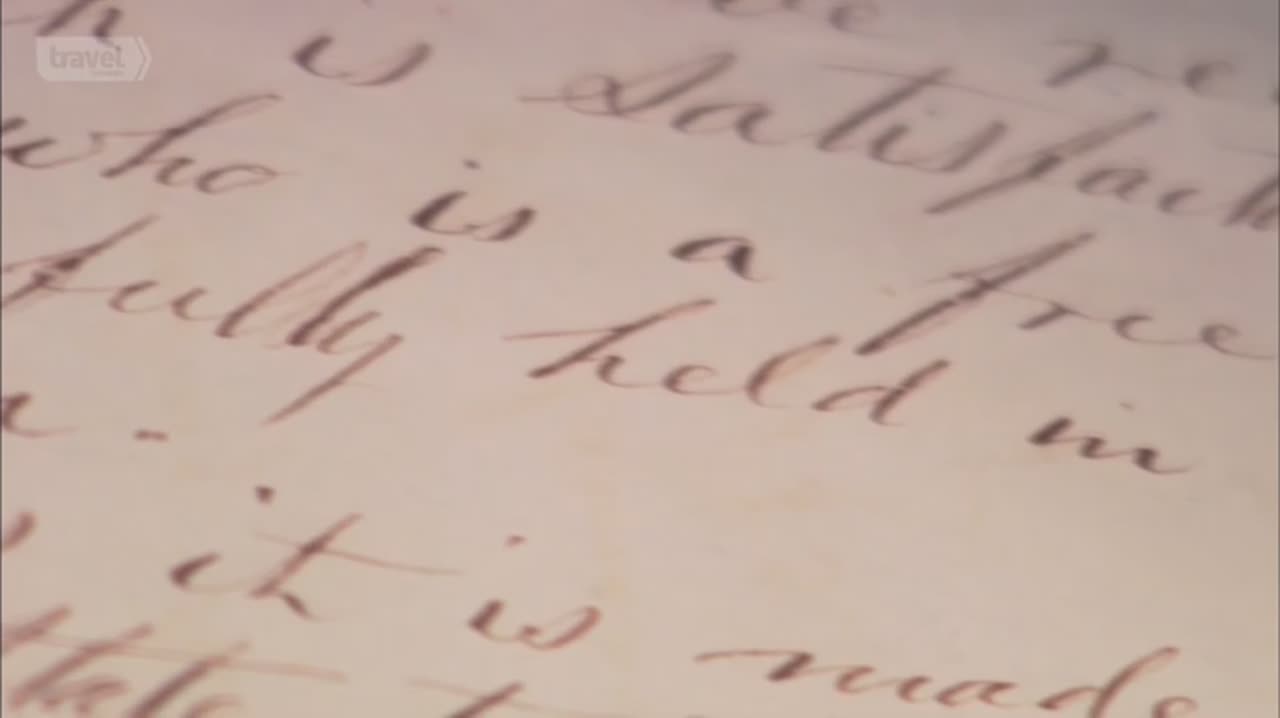 travel
is satisfact
who is a free
fully held in
it is made
state